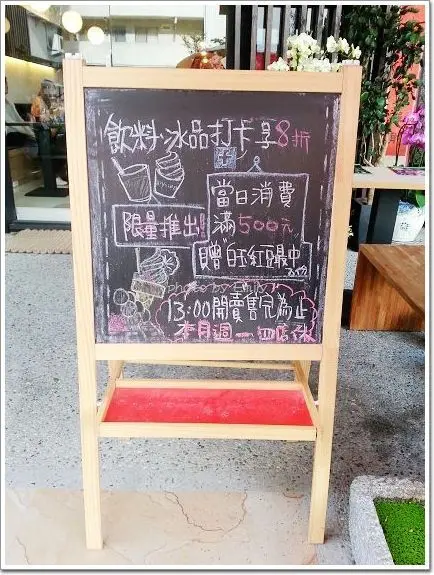 飲料.冰品打卡享8折
當日消費
限量推出!
滿500元
贈"白玉紅豆最中
13:00開賣售完為止
本月週一.四店休